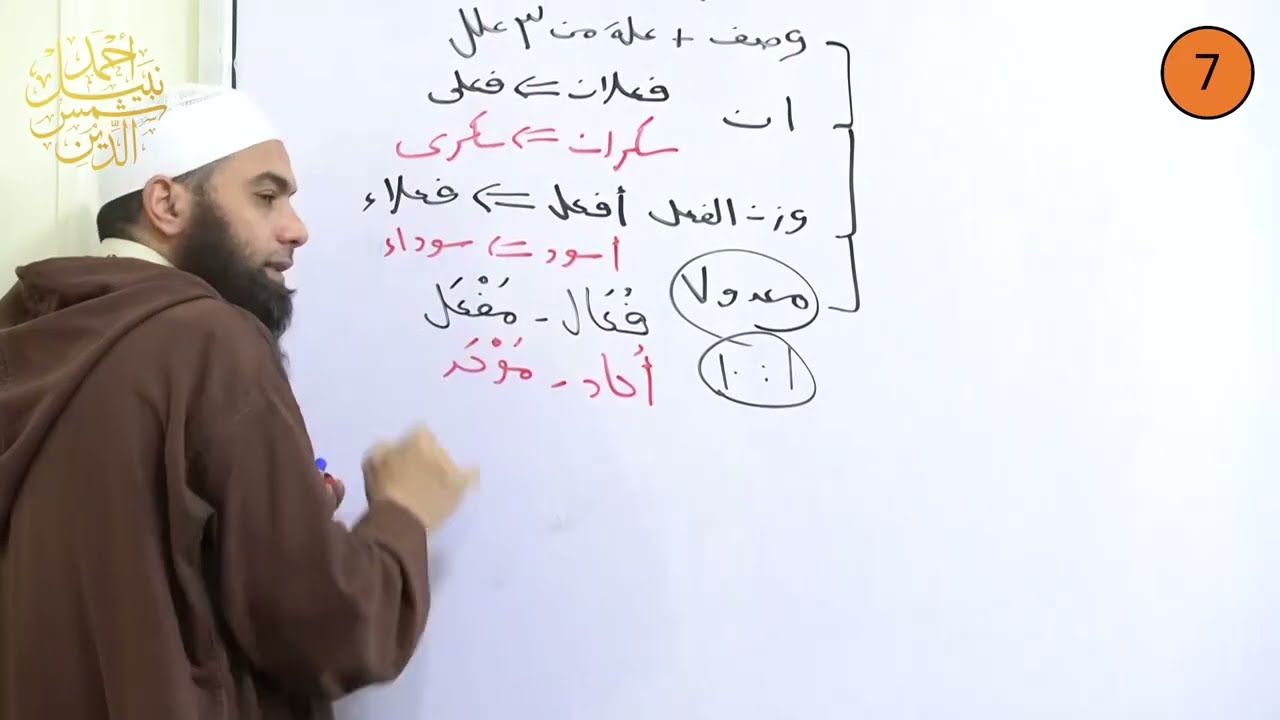 أحمد
نبيل
شمس
الدين
7
وصف + علة من ٣ علل
ان فعلان ⇐ فعلى
سكران ⇐ سكرى
وزن الفعل أفعل ⇐ فعلاء
أسود ⇐ سوداء
معدولا فُعَال - مَفْعَل
١ : ١٠ أُحاد - مَوْحَد